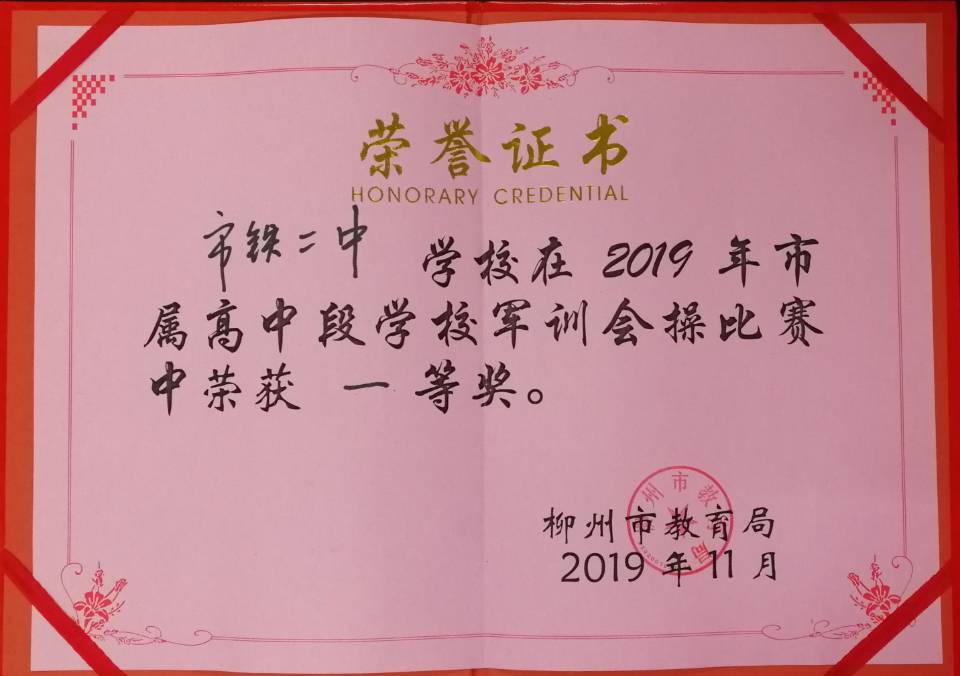 荣誉证书
HONORARY CREDENTIAL
市铁二中 学校在 2019 年市
属高中段学校军训会操比赛
中荣获 一等奖。
柳州市教育局
2019 年 11 月